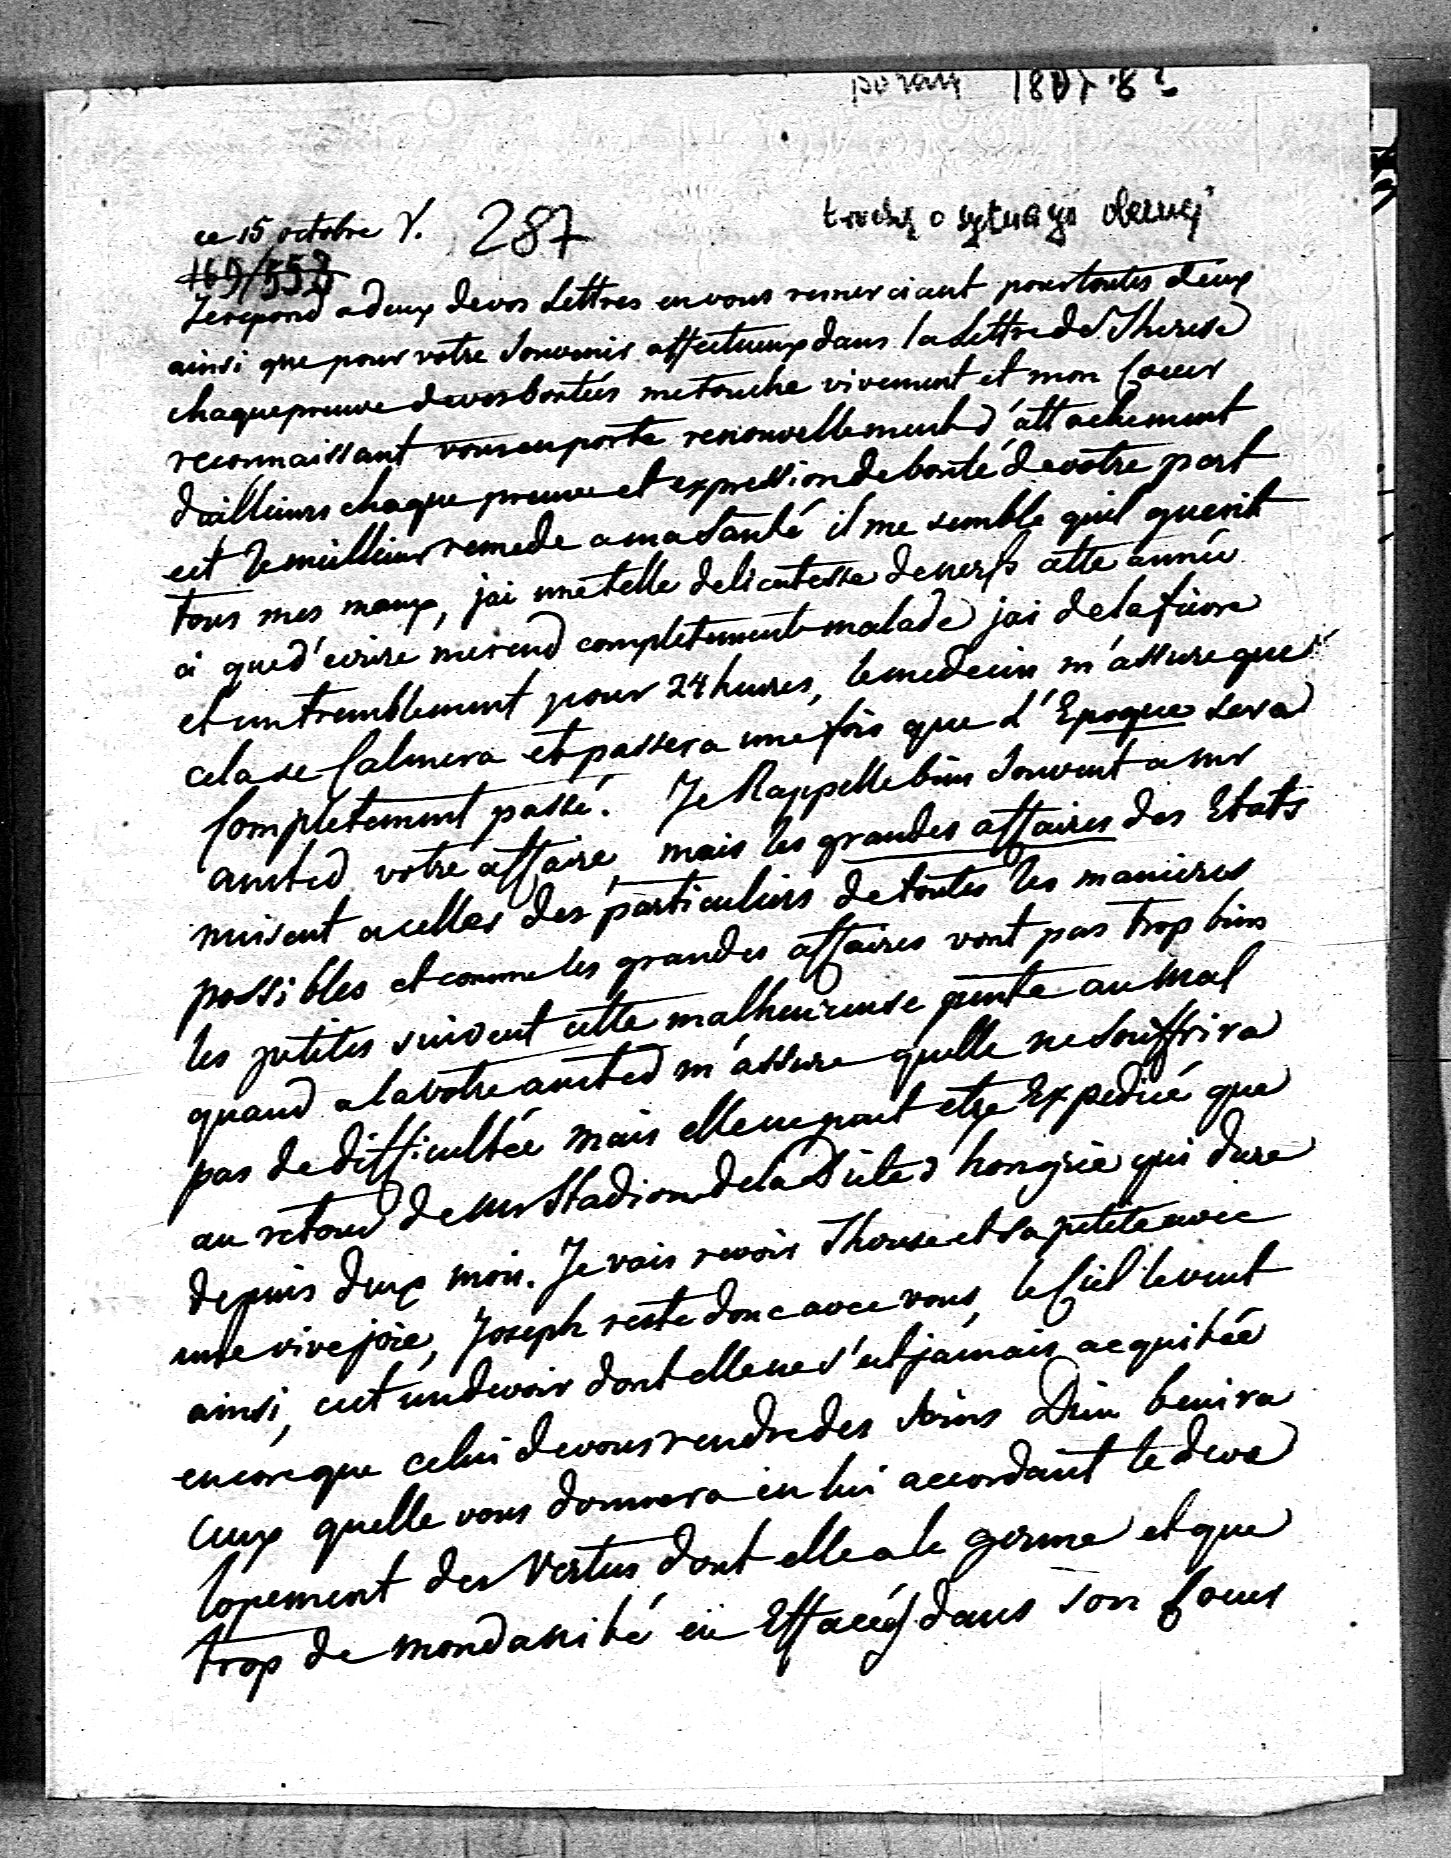 ce 15 octobre V. 287
169/553
Je repond a deux de vos Lettres en vous remerciant pour toutes deux
ainsi que pour votre Souvenir affectueux dans la Lettre de Therese
chaque preuve de vos bontées me touche vivement et mon Coeur
reconnaissant vous en porte renouvellement d'attachement
dailleurs chaque preuve et expression de bonté de votre part
est le meilleur remede a ma Santé il me semble quil guerit
tous mes maux, jai une telle delicatesse de nerfs cette année
ci que d'ecrire me rend completement malade jai de la fievre
et un tremblement pour 24 heures, le medecin m'assure que
cela se Calmera et passera une fois que l'Epoque sera
Completement passé. Je Rappelle bien Souvent a mr
amted votre affaire, mais les grandes affaires des Etats
nuisent a celles des particuliers de toutes les manieres
possibles et comme les grandes affaires vont pas trop bien
les petites suivent cette malheureuse pente au Mal
quand a la votre amted m'assure quelle ne Souffrira
pas de difficultée mais elle ne peut etre Expediée que
au retour de mr Stadion de la Diete d'hongrie qui dure
depuis deux mois. Je vais revoir Therese et sa petite avec
une vive joie, Joseph reste donc avec vous, le Ciel le veut
ainsi, cest un devoir dont elle ne s'est jamais acquitée
encore que celui de vous rendre des Soins Dieu benira
Ceux quelle vous donnera en lui accordant le deve
lopement des Vertus dont elle a le germe et que
trop de mondanité eu Effacées dans son Coeur